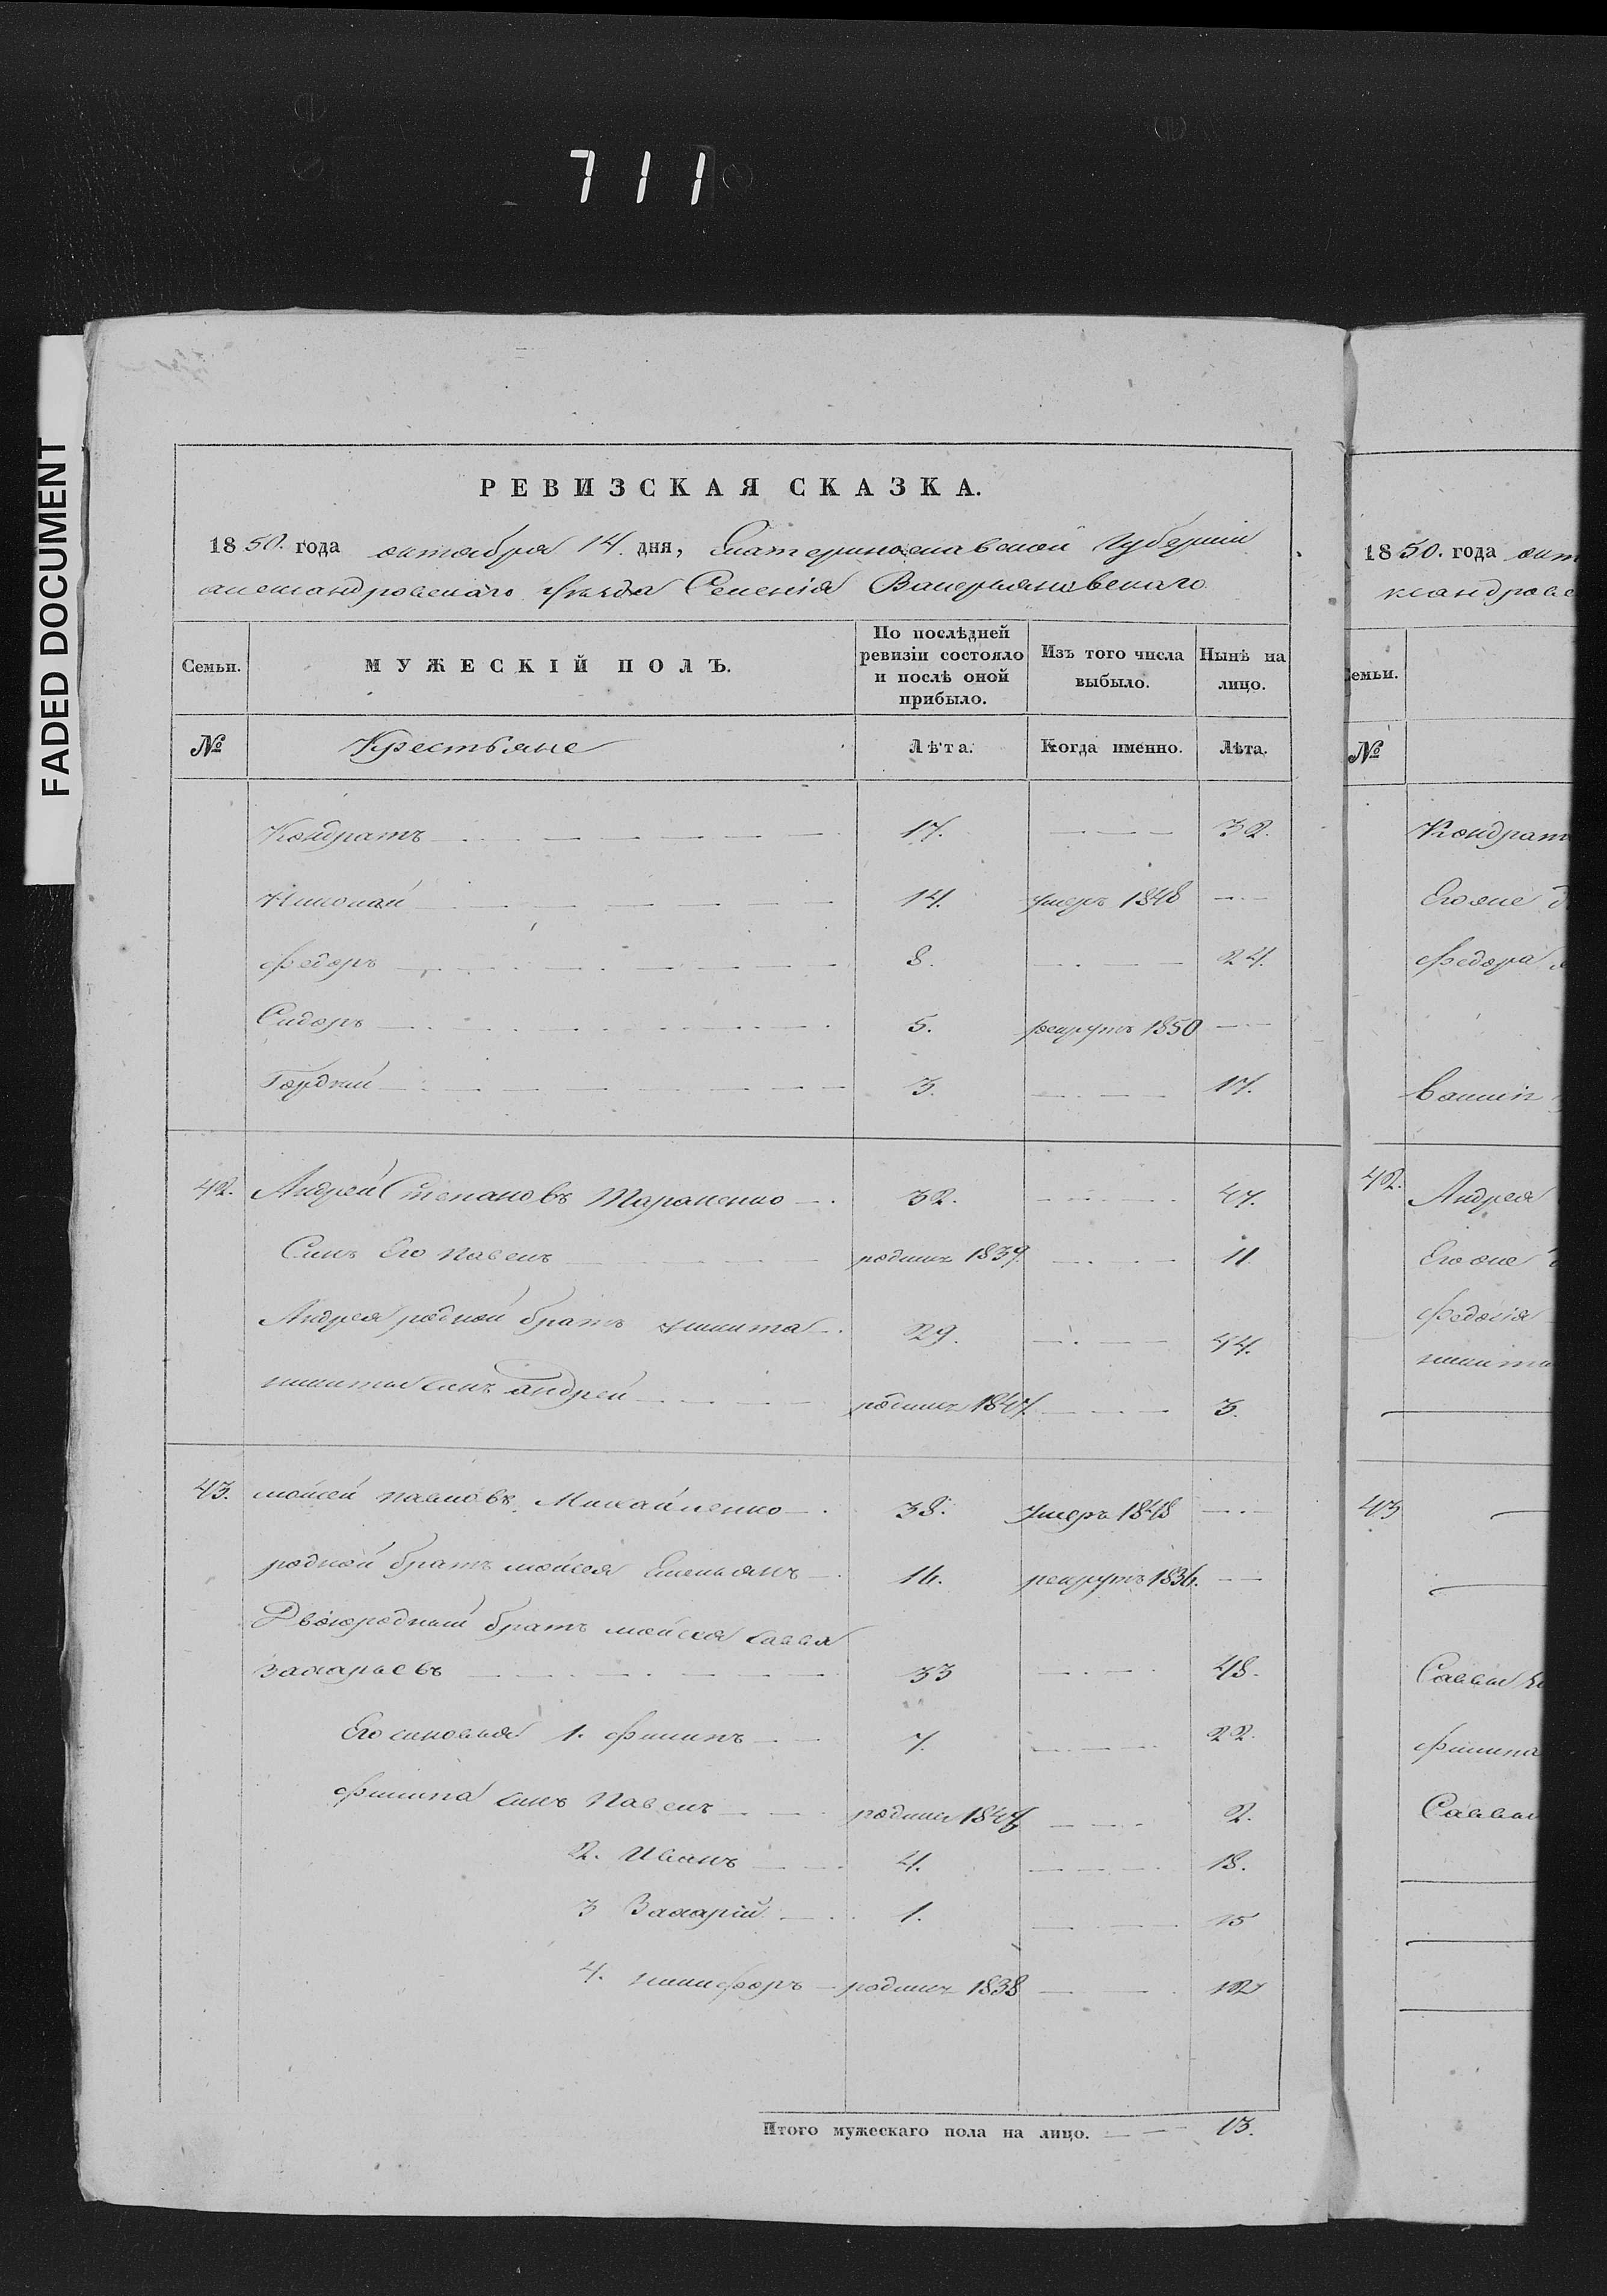 711
FADED DOCUMENT
РЕВИЗСКАЯ СКАЗКА.
1850. года октября 14. дня, Екатеринославской Губернии
александровскаго Уезда Селенія
Семьи. МУЖЕСКІЙ ПОЛЪ. По послѣдней ревизіи состояло и послѣ оной прибыло. Изъ того числа выбыло. Нынѣ на лицо.
№ Крестьяне Лѣта. Когда именно. Лѣта.
Кондратъ 17. 32.
Николай 14. умеръ 1848
Федоръ 8. 24.
Сидоръ 5. рекрутъ 1850
Гордий 3. 17.
42. Андрей Степановъ Тараненко 32. 47.
Сынъ Его Павелъ родился 1839 11
Андрея родной братъ Никита 29. 44.
никиты сынъ андрей родился 1847 3.
43. мойсей павловъ Михайленко 38. Умеръ 1848
родной братъ мойсея Емельянъ 16. рекрутъ 1836.
Двоюродный братъ мойсея Савва
Захарьевъ 33 48.
Его сыновья 1. филипъ 7. 22.
филипа сынъ Павелъ родился 2.
2. Иванъ 4. 18.
3 Захарій 1. 15
4. никифоръ родился 1838 12
Итого мужескаго пола на лицо. 13.
1850. года окт
ксандровс
Семьи.
№
Кондрат
Его же
Федора
42. Андрея
Его же
никиты
43
Саввы
филипа
Саввы